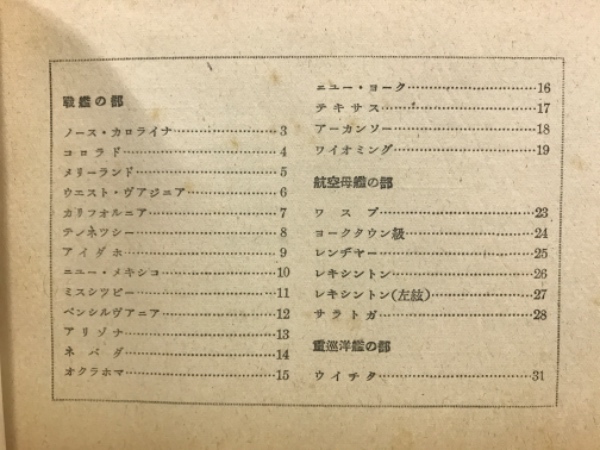 戰艦の部
ノース・カロライナ…………………3
コロラド…………………4
メリーランド…………………5
ウエスト・ヴアジニア…………………6
カリフオルニア…………………7
テンネツシー…………………8
アイダホ…………………9
ニユー・メキシコ…………………10
ミスシツピー…………………11
ペンシルヴアニア…………………12
アリゾナ…………………13
ネバダ…………………14
オクラホマ…………………15
ニユー・ヨーク…………………16
テキサス…………………17
アーカンソー…………………18
ワイオミング…………………19
航空母艦の部
ワスプ…………………23
ヨークタウン級…………………24
レンヂヤー…………………25
レキシントン…………………26
レキシントン(左舷)…………………27
サラトガ…………………28
重巡洋艦の部
ウイチタ…………………31